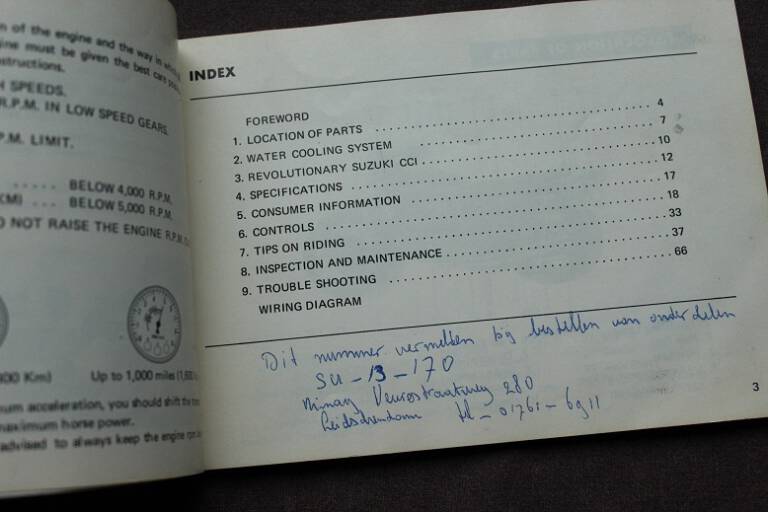 n of the engine and the way in which
ine must be given the best care
structions.
H SPEEDS.
R.P.M. IN LOW SPEED GEARS
P.M. LIMIT.
..... BELOW 4,000 R.P.M.
KM) ... BELOW 5,000 R.P.M.
O NOT RAISE THE ENGINE R.P.M.
Km) Up to 1,000 miles
um acceleration, you should shift the
maximum horse power.
advised to always keep the engine
INDEX
FOREWORD
1. LOCATION OF PARTS .......... 4
2. WATER COOLING SYSTEM .......... 7
3. REVOLUTIONARY SUZUKI CCI .......... 10
4. SPECIFICATIONS .......... 12
5. CONSUMER INFORMATION .......... 17
6. CONTROLS .......... 18
7. TIPS ON RIDING .......... 33
8. INSPECTION AND MAINTENANCE .......... 37
9. TROUBLE SHOOTING .......... 66
WIRING DIAGRAM
Dit nummer vermelden bij bestellen van onderdelen
SU-13-170
280
Leidschendam tel - 01761-6911
3